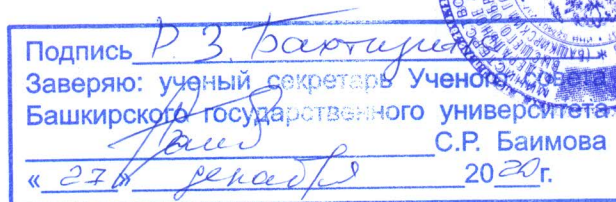 Подпись Р. З. Бахтизин
Заверяю: ученый секретарь Ученого совета
Башкирского государственного университета
С.Р. Баимова
« 27 » декабря 2020г.